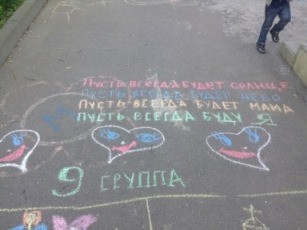 Пусть всегда будет солнце
Пусть всегда будет небо
Пусть всегда будет мама
Пусть всегда буду Я
9 группа